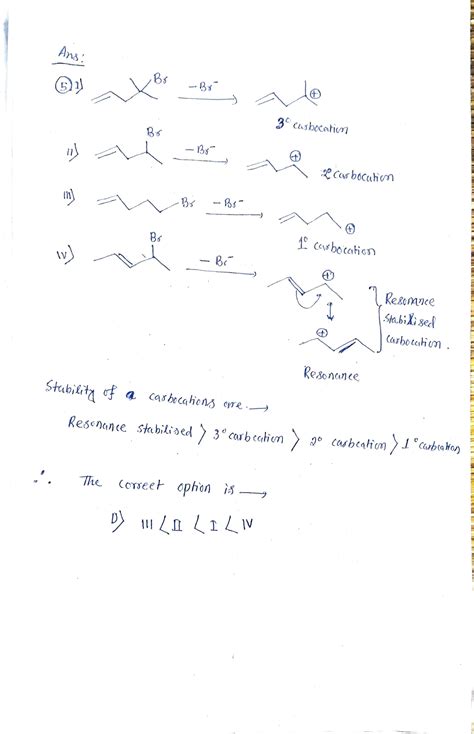 Ans:
5) I) Br -Br⁻ ⊕
3° carbocation
II) Br -Br⁻ ⊕
2° carbocation
III) Br -Br⁻ ⊕
1° carbocation
IV) Br -Br⁻ ⊕
⊕
Resonance
stabilised
carbocation.
Resonance
Stability of a carbocations are. →
Resonance stabilised > 3° carbocation > 2° carbocation > 1° carbocation
∴ The correct option is →
D) III < II < I < IV